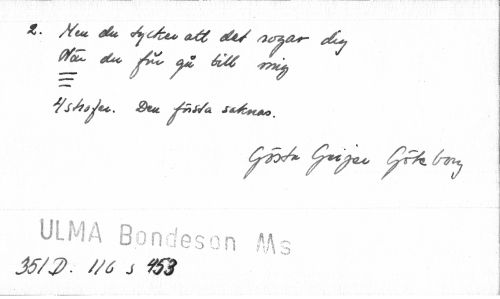 2. Men du tycker att det rogar dig
När du får gå till mig
4 strofer. Den första saknas.
Gösta Geijer Göteborg
ULMA Bondeson Ms
351 D. 116 s 453